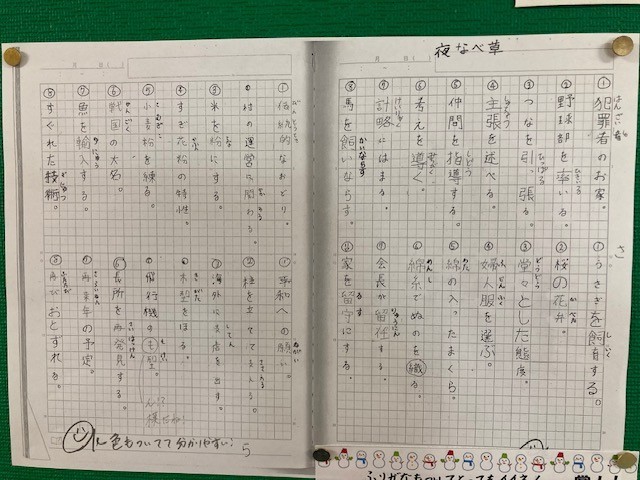 夜なべ草
①犯罪者のお家。
②野球部を率いる。
③つなを引っ張る。
④主張を述べる。
⑤仲間を指導する。
⑥考えを導く。
⑦計略にはまる。
⑧馬を飼いならす。
①うさぎを飼育する。
②桜の花弁。
③堂々とした態度。
④婦人服を選ぶ。
⑤綿の入ったまくら。
⑥綿糸でぬのを織る。
⑦会長が留任する。
家を留守にする。
①伝統的なおどり。
②村の運営に関わる。
③米を粉にする。
④すぎ花粉の特性。
⑤小麦粉を練る。
⑥戦国の大名。
⑦魚を輸入する。
⑧すぐれた技術。
①平和への願い。
柱を立てて支える。
③海外に支店を出す。
④木型をほる。
⑤飛行機の模型。
⑥長所を再発見する。
⑦再来年の予定。
⑧再びおとずれる。
色もついてて分かりやすい!
5